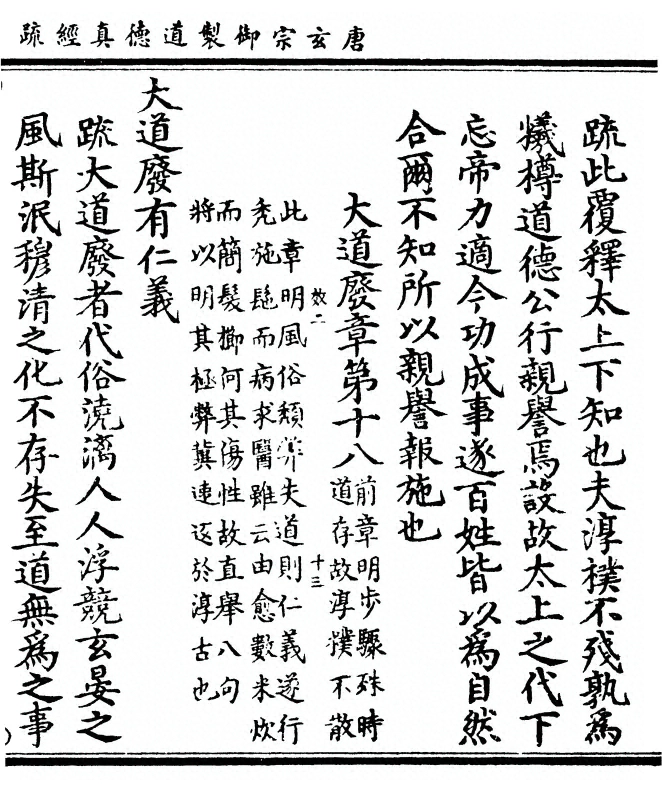 唐玄宗御製道德真經疏
疏此覆釋太上下知也夫淳樸不殘孰為
犧樽道德公行親譽焉設故太上之代下
忘帝力適令功成事遂百姓皆以為自然
合爾不知所以親譽報施也
大道廢章第十八
前章明步驟殊時
道存故淳樸不散
效二
十三
此章明風俗頹弊夫道則仁義遂行
禿施髢而病求醫雖云由愈數米炊
而簡髮櫛何其傷性故直舉八句
將以明其極弊冀速返於淳古也
大道廢有仁義
疏大道廢者代俗澆漓人人浮競玄晏之
風斯泯穆清之化不存失至道無為之事